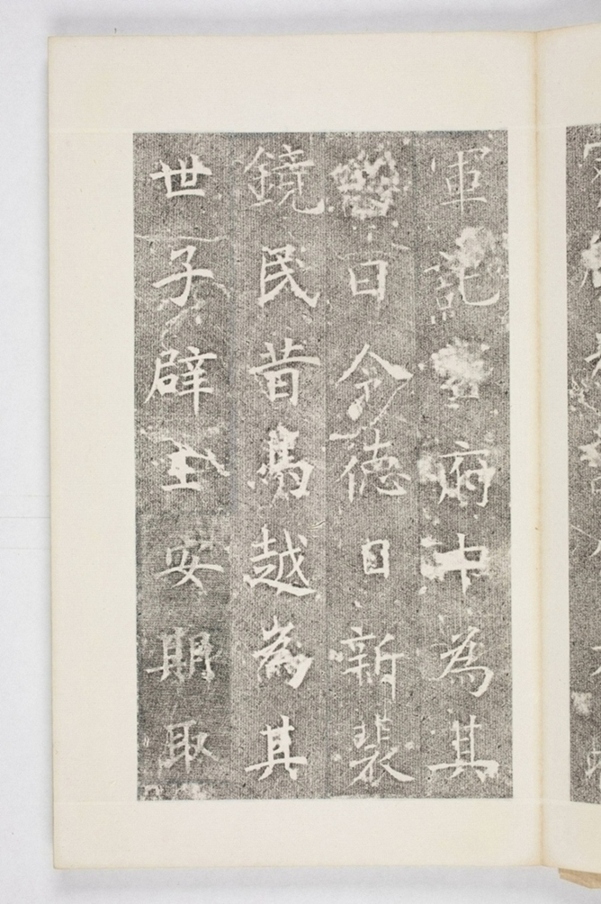 軍記室府中為其
日令德日新裴
鏡民昔馬越為其
世子辟王安期取